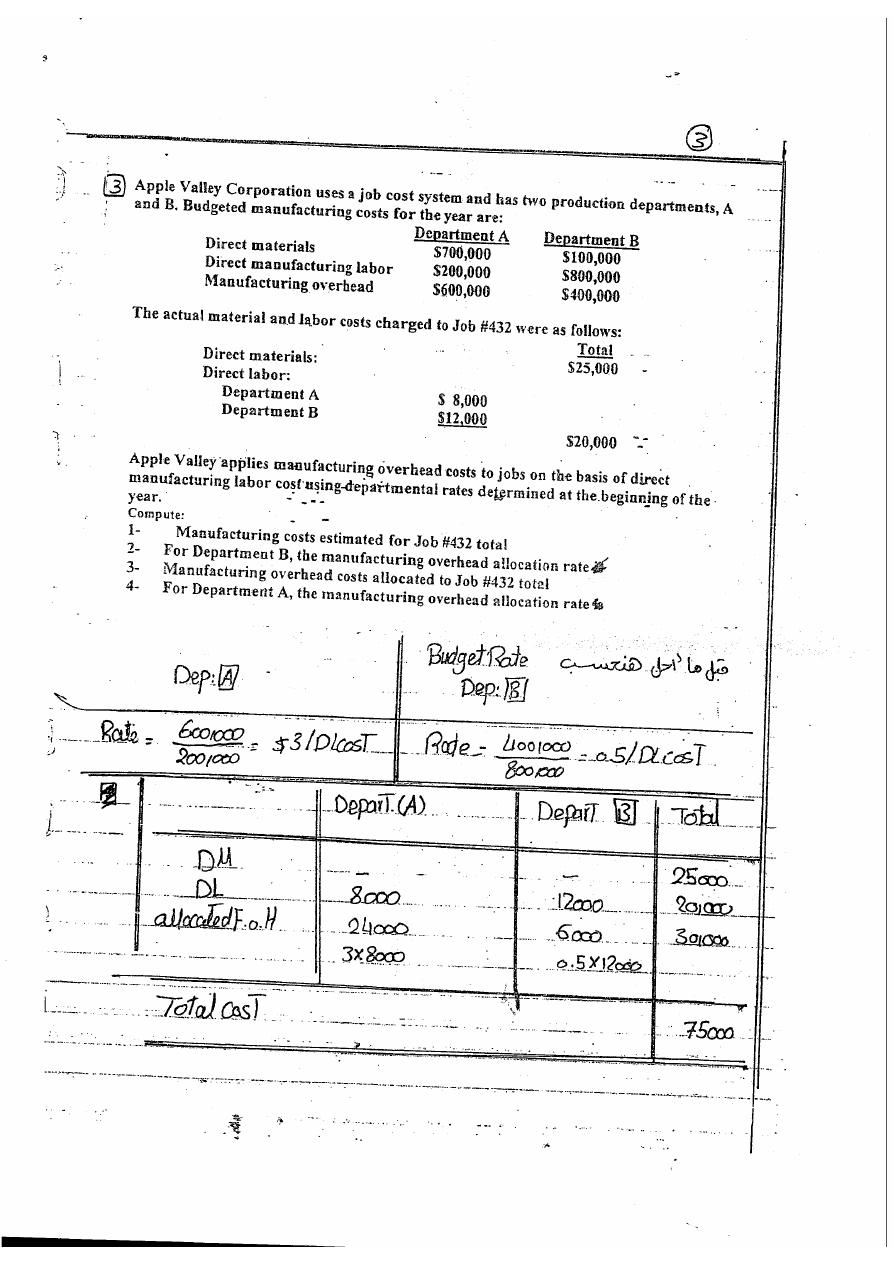 3
3 Apple Valley Corporation uses a job cost system and has two production departments, A
and B. Budgeted manufacturing costs for the year are:
Department A Department B
Direct materials $700,000 $100,000
Direct manufacturing labor $200,000 $800,000
Manufacturing overhead $600,000 $400,000
The actual material and labor costs charged to Job #432 were as follows:
Total
Direct materials: $25,000
Direct labor:
Department A $ 8,000
Department B $12,000
$20,000
Apple Valley applies manufacturing overhead costs to jobs on the basis of direct
manufacturing labor cost using departmental rates determined at the beginning of the
year.
Compute:
1- Manufacturing costs estimated for Job #432 total
2- For Department B, the manufacturing overhead allocation rate
3- Manufacturing overhead costs allocated to Job #432 total
4- For Department A, the manufacturing overhead allocation rate
Budget Rate قبل ما احل هنحسب
Dep: A Dep: B
Rate = 600,000 / 200,000 = $3/DLcosT
Rate = 400,000 / 800,000 = 0.5/DLcosT
DeparT.(A) DeparT B Total
DM - - 25000
DL 8000 12000 20,000
allocated F.o.H 24000 6000 30,000
3x8000 0.5x12000
Total cosT 75000